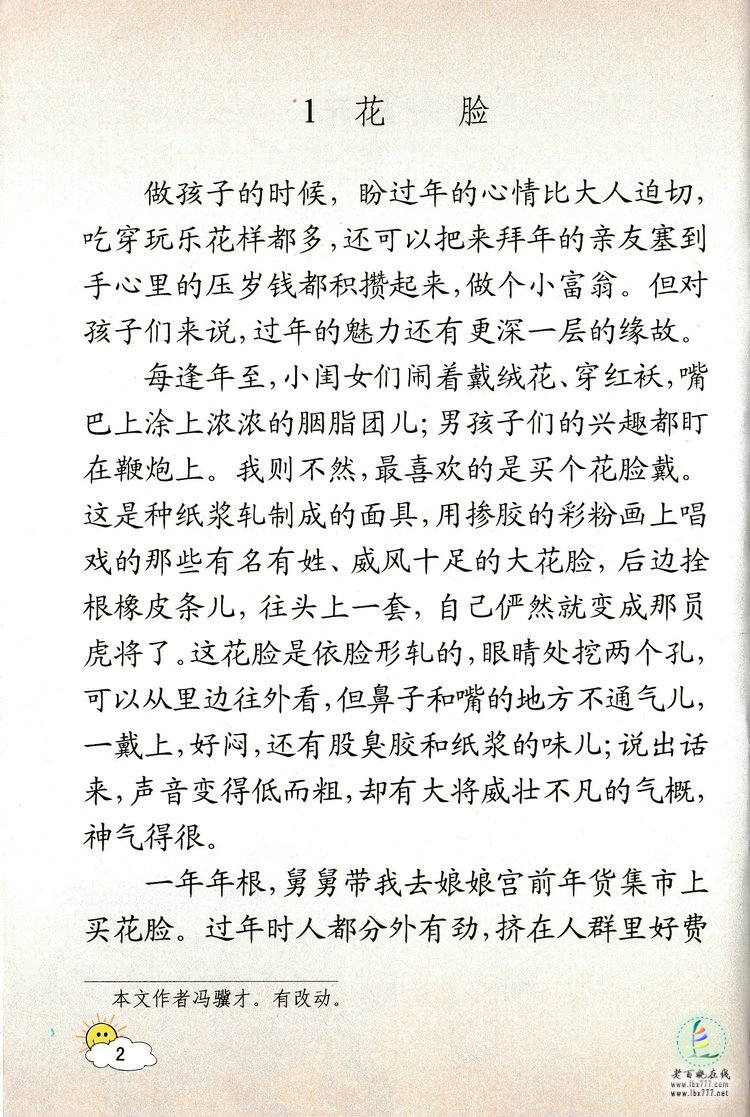 1 花 脸
做孩子的时候，盼过年的心情比大人迫切，
吃穿玩乐花样都多，还可以把来拜年的亲友塞到
手心里的压岁钱都积攒起来，做个小富翁。但对
孩子们来说，过年的魅力还有更深一层的缘故。
每逢年至，小闺女们闹着戴绒花、穿红袄，嘴
巴上涂上浓浓的胭脂团儿；男孩子们的兴趣都盯
在鞭炮上。我则不然，最喜欢的是买个花脸戴。
这是种纸浆轧制成的面具，用掺胶的彩粉画上唱
戏的那些有名有姓、威风十足的大花脸，后边拴
根橡皮条儿，往头上一套，自己俨然就变成那员
虎将了。这花脸是依脸形轧的，眼睛处挖两个孔，
可以从里边往外看，但鼻子和嘴的地方不通气儿，
一戴上，好闷，还有股臭胶和纸浆的味儿；说出话
来，声音变得低而粗，却有大将威壮不凡的气概，
神气得很。
一年年根，舅舅带我去娘娘宫前年货集市上
买花脸。过年时人都分外有劲，挤在人群里好费
本文作者冯骥才。有改动。
2
老百晓在线
www.lbx777.com
www.lbx777.net